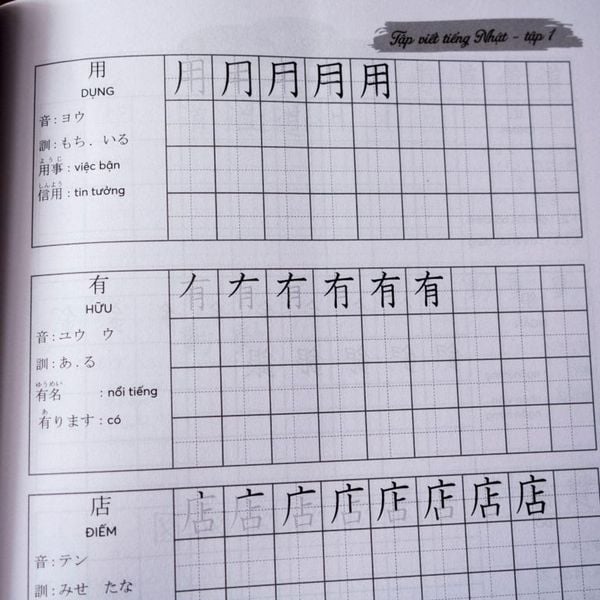 Tập viết tiếng Nhật - tập 1
用
DỤNG
音 : ヨウ
訓 : もち . いる
ようじ
用事 : việc bận
しんよう
信用 : tin tưởng
有
HỮU
音 : ユウ ウ
訓 : あ . る
ゆうめい
有名 : nổi tiếng
あ
有ります : có
店
ĐIẾM
音 : テン
訓 : みせ たな